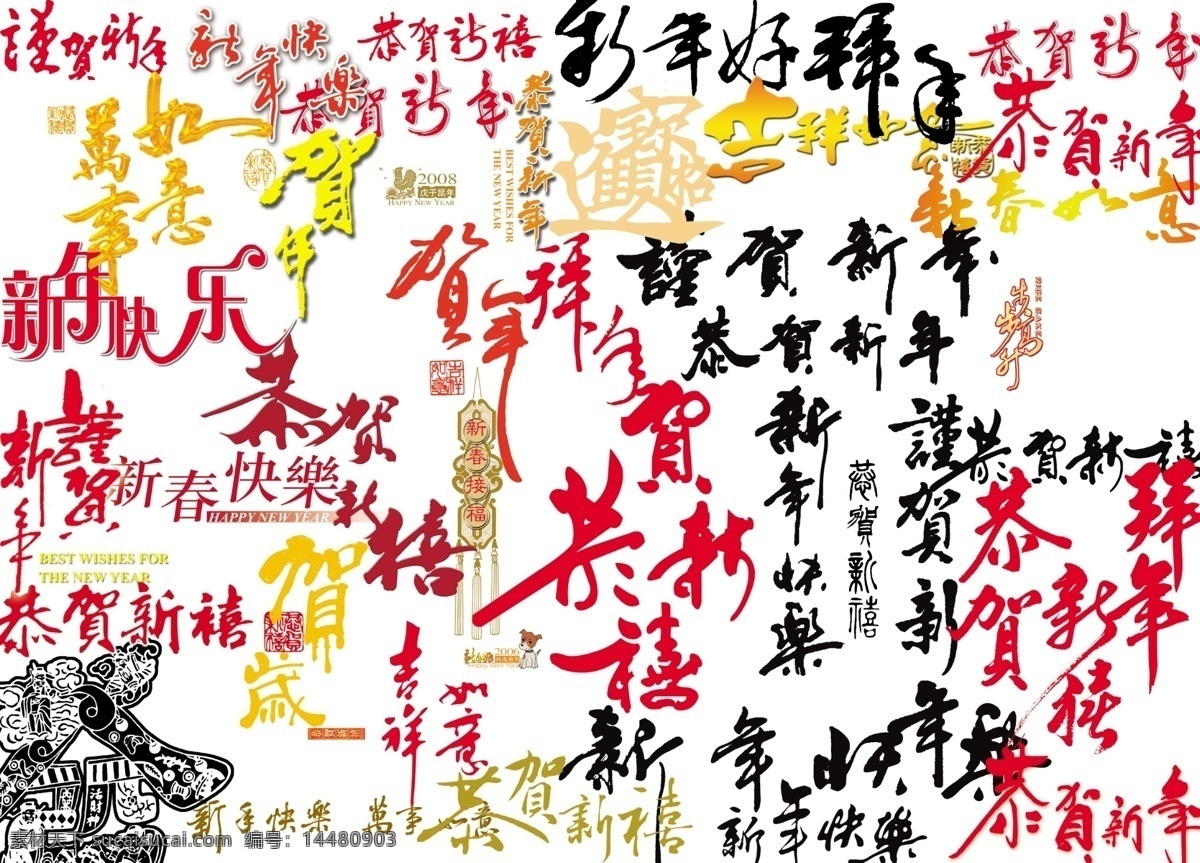 謹贺新年
新年快樂
恭贺新禧
恭贺新年
新年好
拜年
恭贺新年
萬事如意
賀年
2008
戊子鼠年
HAPPY NEW YEAR
恭贺新年
BEST WISHES FOR
THE NEW YEAR
吉祥如意
恭贺新年
新春如意
新年快乐
贺年
拜年
謹贺新年
恭贺新年
吉祥如意
恭贺新禧
謹賀新年
新春快樂
HAPPY NEW YEAR
新春接福
恭贺新禧
新年快樂
恭賀新禧
謹贺新年
恭贺新禧
恭贺新禧
拜年
BEST WISHES FOR
THE NEW YEAR
恭贺新禧
賀歲
2006
Happy New Year
吉祥如意
新年快樂
新年快樂
恭贺新年
恭贺新禧
新年快樂 萬事如意
素材天下 sucaisucai.com 编号：14480903